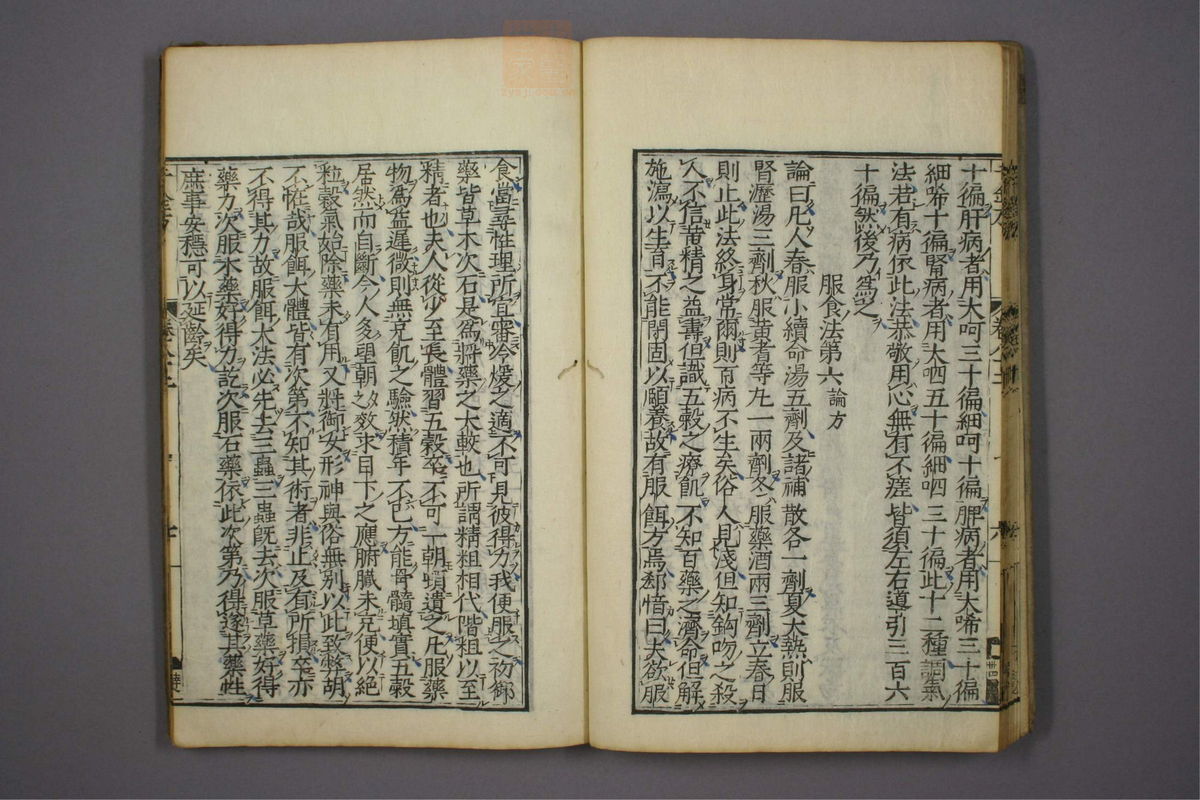 十徧肝病者用大呵三十徧細呵十徧脾病者用大唏三十徧
細唏十徧腎病者用大呬五十徧細呬三十徧此十二種調氣
法若有病依此法恭敬用心無有不瘥皆須左右導引三百六
十徧然後乃爲之
服食法第六論方
論曰凡人春服小續命湯五劑及諸補散各一劑夏大熱則服
腎瀝湯三劑秋服黄耆等丸一兩劑冬服藥酒兩三劑立春日
則止此法終身常爾則百病不生矣俗人見淺但知鈎吻之殺
人不信黄精之益壽但識五穀之療飢不知百藥之濟命但解
施瀉以生育不能閉固以頤養故有服餌方焉郄愔曰夫欲服
食當尋性理所宜審冷煖之適不可見彼得力我便服之初御
藥皆草木次石是爲將藥之大較也所謂精粗相代階粗以至
精者也夫人從少至長體習五穀卒不可一朝頓遺之凡服藥
物爲益遲微則無充飢之驗然積年不已方能骨髓填實五穀
居然而自斷今人多望朝夕之效求目下之應腑臟未充便以絕
粒穀氣始除藥未有用又將御女形神與俗無别以此致弊胡
不怪哉服餌大體皆有次第不知其術者非止交有所損卒亦
不得其力故服餌大法必先去三蟲三蟲既去次服草藥好得
藥力次服木藥好得力訖次服石藥依此次第乃得遂其藥性
庶事安穩可以延齡矣